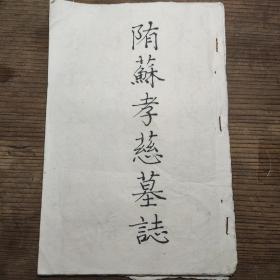 隋蘇孝慈墓誌